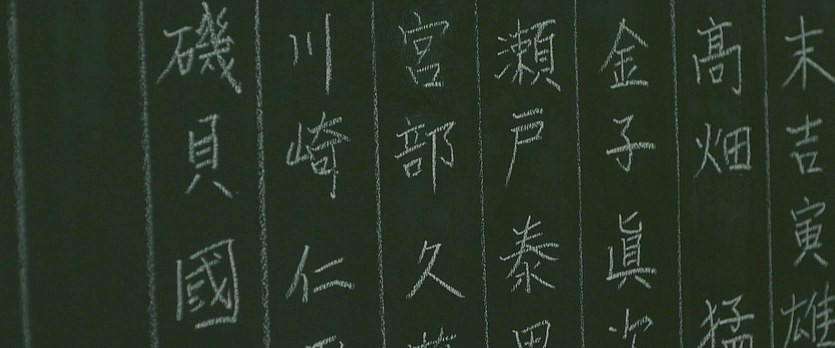 末吉寅雄
高畑猛
金子眞次
瀬戸泰
宮部久
川崎仁
磯貝國